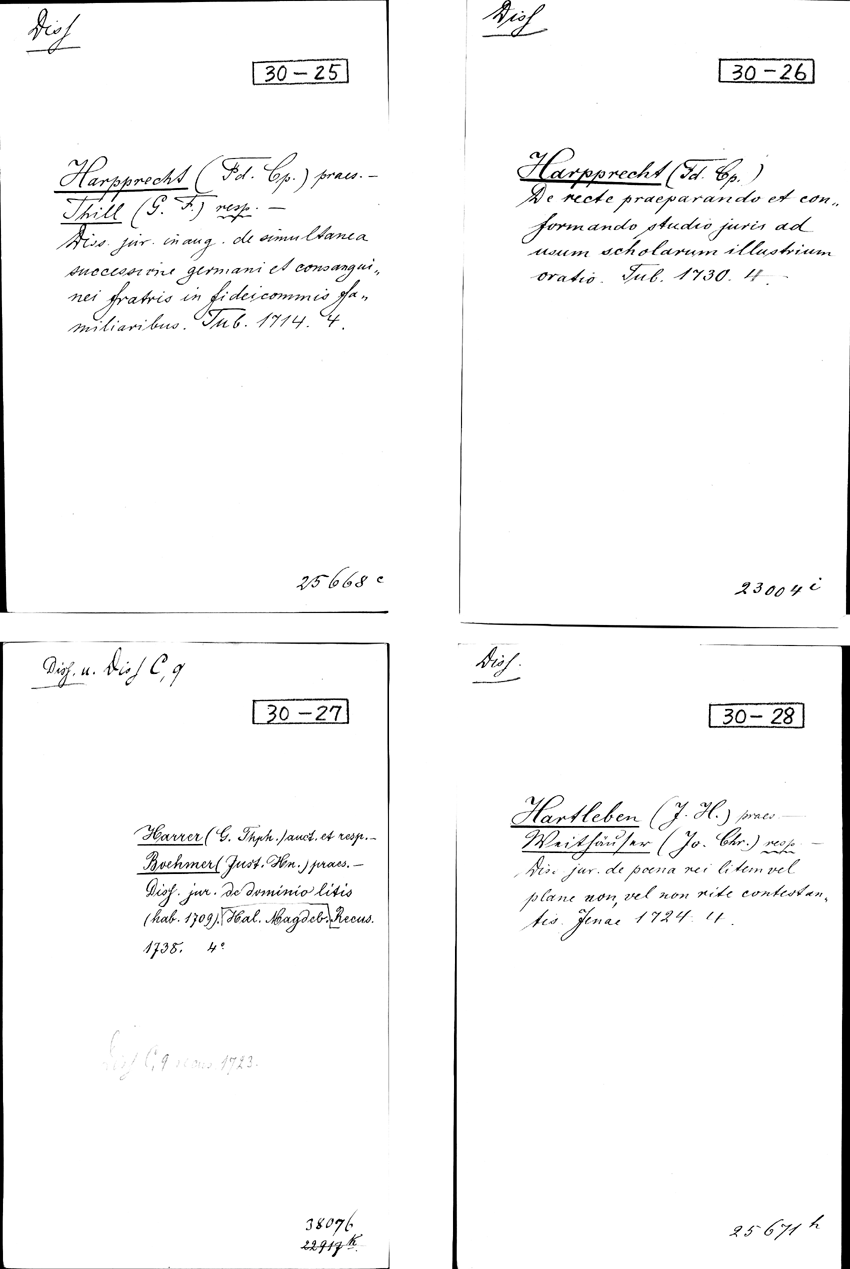 Diss
30-25
Harpprecht (Fd. Cp.) praes. –
Thill (G. F.) resp. –
Diss. jur. inaug. de simultanea
successione germani et consangui„
nei fratris in fideicommis fa„
miliaribus. Tub. 1714. 4.
25668 c
Diss
30-26
Harpprecht (Fd. Cp.)
De recte praeparando et con„
formando studio juris ad
usum scholarum illustrium
oratio. Tub. 1730. 4.
23004 i
Diss. u. Diss C, 9
30-27
Harrer (G. Thph.) auct. et resp. –
Boehmer (Just. Hn.) praes. –
Diss. jur. de dominio litis
(hab. 1709). Hal. Magdeb. Recus.
1738. 4°
Diss C, 9 recus. 1723.
38076
22917 k.
Diss.
30-28
Hartleben (J. H.) praes –
Weithäuser (Jo. Chr.) resp –
Dis. jur. de poena rei litem vel
plane non, vel non rite contestan„
tis. Jenae 1724. 4.
25671 h